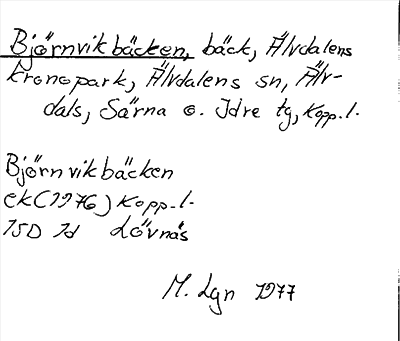 Björnvikbäcken, bäck, Älvdalens
kronopark, Älvdalens sn, Älv-
dals, Särna o. Idre tg, Kopp.l.
Björnvikbäcken
ek (1976) Kopp.l.
15D 1d Lövnäs
M. Lgn 1977